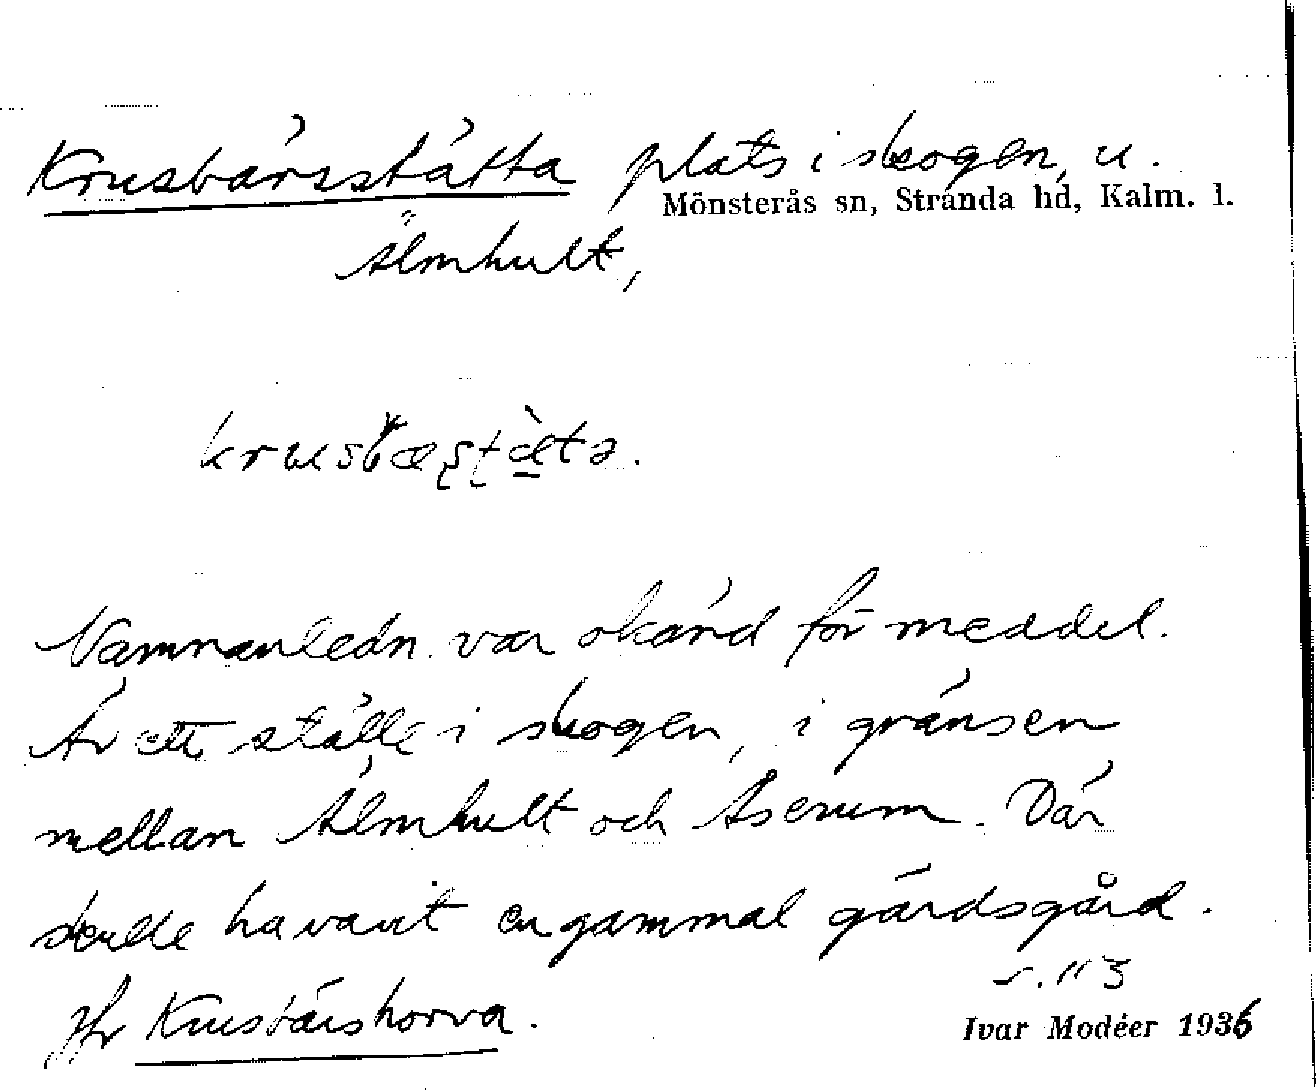 Krusbärsstätta plats i skogen, u.
Mönsterås sn, Stranda hd, Kalm. l.
Älmhult,
Namnanledn. var okänd för meddel.
Är ett ställe i skogen, i gränsen
mellan Älmhult och Åserum. Där
skulle ha varit en gammal gärdsgård.
s. 113
Jfr Krusbärshorva.
Ivar Modéer 1936